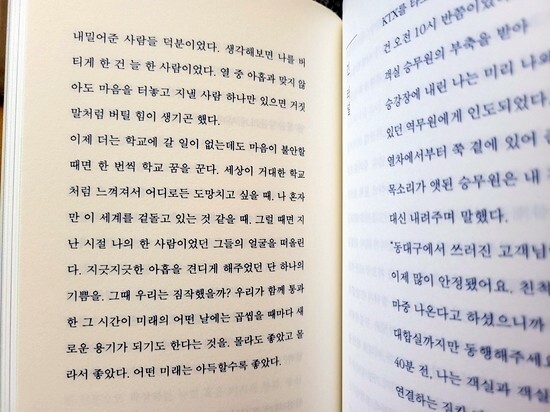 내밀어준 사람들 덕분이었다. 생각해보면 나를 버
티게 한 건 늘 한 사람이었다. 열 중 아홉과 맞지 않
아도 마음을 터놓고 지낼 사람 하나만 있으면 거짓
말처럼 버틸 힘이 생기곤 했다.
이제 더는 학교에 갈 일이 없는데도 마음이 불안할
때면 한 번씩 학교 꿈을 꾼다. 세상이 거대한 학교
처럼 느껴져서 어디로든 도망치고 싶을 때. 나 혼자
만 이 세계를 겉돌고 있는 것 같을 때. 그럴 때면 지
난 시절 나의 한 사람이었던 그들의 얼굴을 떠올린
다. 지긋지긋한 아홉을 견디게 해주었던 단 하나의
기쁨을. 그때 우리는 짐작했을까? 우리가 함께 통과
한 그 시간이 미래의 어떤 날에는 곱씹을 때마다 새
로운 용기가 되기도 한다는 것을. 몰라도 좋았고 몰
라서 좋았다. 어떤 미래는 아득할수록 좋았다.
KTX를
건 오전 10시 반쯤이었
객실 승무원의 부축을 받아
승강장에 내린 나는 미리 나와
있던 역무원에게 인도되었다
열차에서부터 쭉 곁에 있어
목소리가 앳된 승무원은 내
대신 내려주며 말했다.
"동대구에서 쓰러진 고객님
이제 많이 안정됐어요. 친척
마중 나온다고 하셨으니까
대합실까지만 동행해주세요
40분 전, 나는 객실과 객실
연결하는